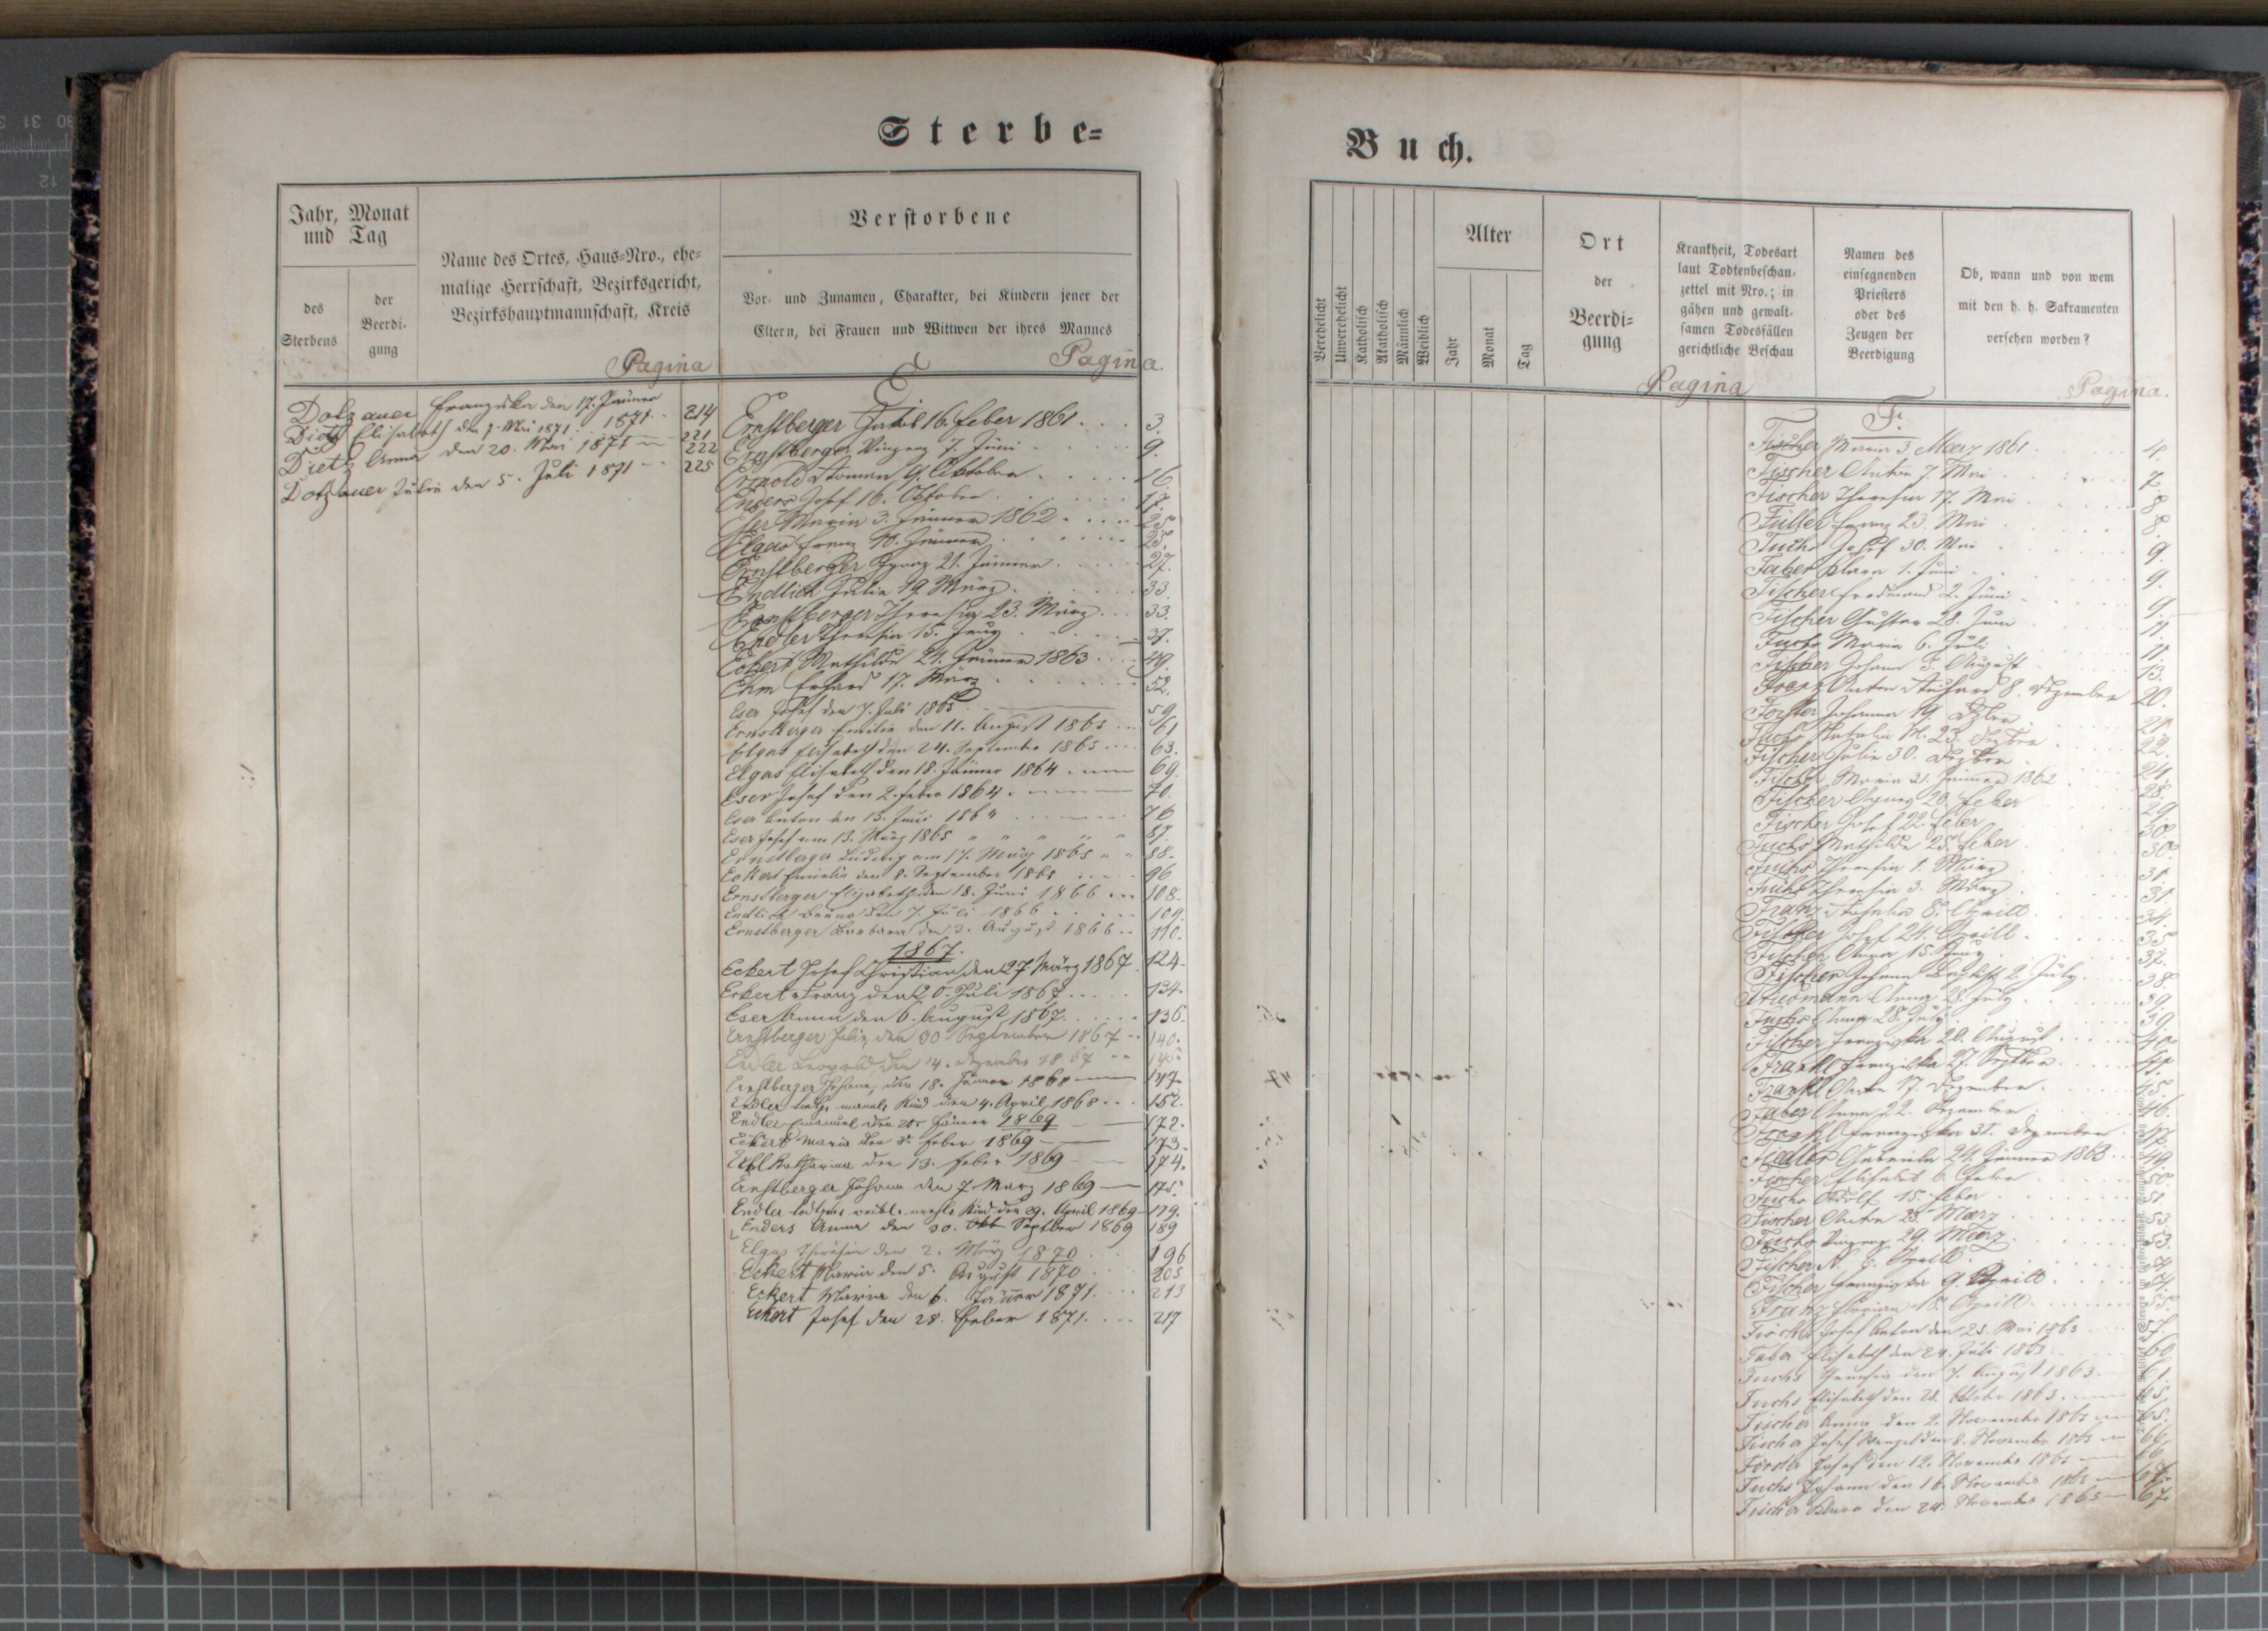 Sterbe=
Jahr, Monat
und Tag
des
Sterbens
der
Beerdi-
gung
Name des Ortes, Haus-Nro., ehe-
malige Herrschaft, Bezirksgericht,
Bezirkshauptmannschaft, Kreis
Verstorbene
Vor- und Zunamen, Charakter, bei Kindern jener der
Eltern, bei Frauen und Wittwen der ihres Mannes
Pagina
Pagina
Dotzauer Franziska den 17. Jänner
1871 214
Dietz Elisabeth den 7. Mai 1871 221
Dietz Anna den 20. Mai 1871 222
Dotzauer Julie den 5. Juli 1871 225
E
Ernstberger Jakob 16. Feber 1861 . . . 3.
Ernstberger Vinzenz 7. Juni 9.
9. Oktober 16.
Enders Josef 16. Oktober 17.
Maria 3. Jänner 1862 25
Elgas Franz 10. Jänner 25.
Ernstberger Ignaz 21. Jänner 27.
Endlich Julie 19. März 33.
Ernstberger Theresia 23. März 33.
Endler Theresia 15. Juny 37.
Eckert Mathilde 24. Jänner 1863 49.
Ehm Erhard 17. März 52.
Eser Josef den 7. Juli 1863 59.
Ernstberger Emilie den 11. August 1863 61
Elgas Elisabeth den 24. September 1863 63.
Elgas Elisabeth den 18. Jänner 1864 69.
Eser Josef den 2. Feber 1864 70.
Eser Anton den 13. Juni 1864 76
Eser Josef am 13. März 1865 87.
Ernstberger Ludwig am 17. März 1865 88.
Eckert den 8. September 1865 96
Ernstberger Elisabeth den 18. Juni 1866 108.
Endlich den 7. Juli 1866 109.
Ernstberger Barbara den 3. August 1866 110.
1867.
Eckert Josef Christian den 27 März 1867 124.
Eckert Franz den 20. Juli 1867 134.
Eser Anna den 6. August 1867 136.
Ernstberger Julie den 30 September 1867 140.
Endler Leopold den 14. Dezember 1867 145
Ernstberger Johann, den 18. Jänner 1868 147.
Endler Kind den 4. April 1868 152.
Endler Emanuel den 20. Jänner 1869 172.
Eckert Maria den 3. Feber 1869 173
Katharina den 13. Feber 1869 174.
Ernstberger Johann den 7. März 1869 175.
Endler Kind den 29. April 1869 179.
Enders Anna den 30. Okt Septber 1869 189
Elgas Theresia den 2. März 1870 196
Eckert Maria den 5. August 1870 205
Eckert Maria den 6. Jänner 1871. 213
Eckert Josef den 28. Feber 1871. 217
Buch.
Verehelicht
Unverehelicht
Katholisch
Akatholisch
Männlich
Weiblich
Alter
Jahr
Monat
Tag
Ort
der
Beerdi-
gung
Krankheit, Todesart
laut Todtenbeschau-
zettel mit Nro.; in
gähen und gewalt-
samen Todesfällen
gerichtliche Beschau
Namen des
einsegnenden
Priesters
oder des
Zeugen der
Beerdigung
Ob, wann und von wem
mit den h. h. Sakramenten
versehen worden?
Pagina
Pagina.
F.
Fischer Maria 3. März 1861 4.
Fischer Anton 7. Mai 7.
Fischer Theresia 17. Mai 8
Füller Franz 23. Mai 8.
Fuchs Josef 30. Mai 9.
Faber Klara 1. Juni 9.
Fischer Ferdinand 2. Juni 9.
Fischer Gustav 28. Juni 11.
Fuchs Maria 6. Juli 11.
Fischer Johann 3. August 13.
Franz Anton 8. Dezember 20.
Forster Johanna 19. Dzber 21.
Fuchs 23. Dezber 22.
Fischer Julie 30. Dezber 24.
Fischer Maria 21. Jänner 1862 28.
Fischer Agnes 20. Feber 29.
Fischer Josef 22. Feber 30.
Fuchs Mathilde 25. Feber 30.
Fuchs Theresia 1. März 31.
Fuchs Theresia 3. März 31.
Franz 8. Aprill 34.
Fischer Josef 24. Aprill 35
Fischer Anna 15. Juny 37.
Fischer Johann 2. July 38.
Anna 28. July 39.
Fuchs Anna 28. July 39
Fischer Franziska 20. August 40.
Frankl Franziska 27. Septber
Frankl Anton 17. Dezember 45.
Faber Anna 22. Dezember 46.
Frankl Franziska 31. Dezember 47.
Fiedler Gabriele 24. Jänner 1863 49
Fischer Elisabet 6. Feber 50
Fuchs Adolf 15. Feber 51
Fischer Anton 25. März 53.
Fuchs Vinzenz 29. März 53.
Fischer Aprill
Fischer Franziska 9. Aprill
Franz Florian 18. Aprill 55.
Josef Anton den 25. Mai 1863 57.
Faber Elisabeth den 24. Juli 1863 60
Fuchs Theresia den 7. August 1863 61.
Fuchs Elisabeth den 28. Oktober 1863 65.
Fischer Anna den 2. November 1863 65.
Fischer Josef Wenzel den 8. November 1863 66
Förster Josef den 12. November 1863 66.
Fuchs Johann den 16. November 1863 67.
Fischer den 24. November 1863 67.